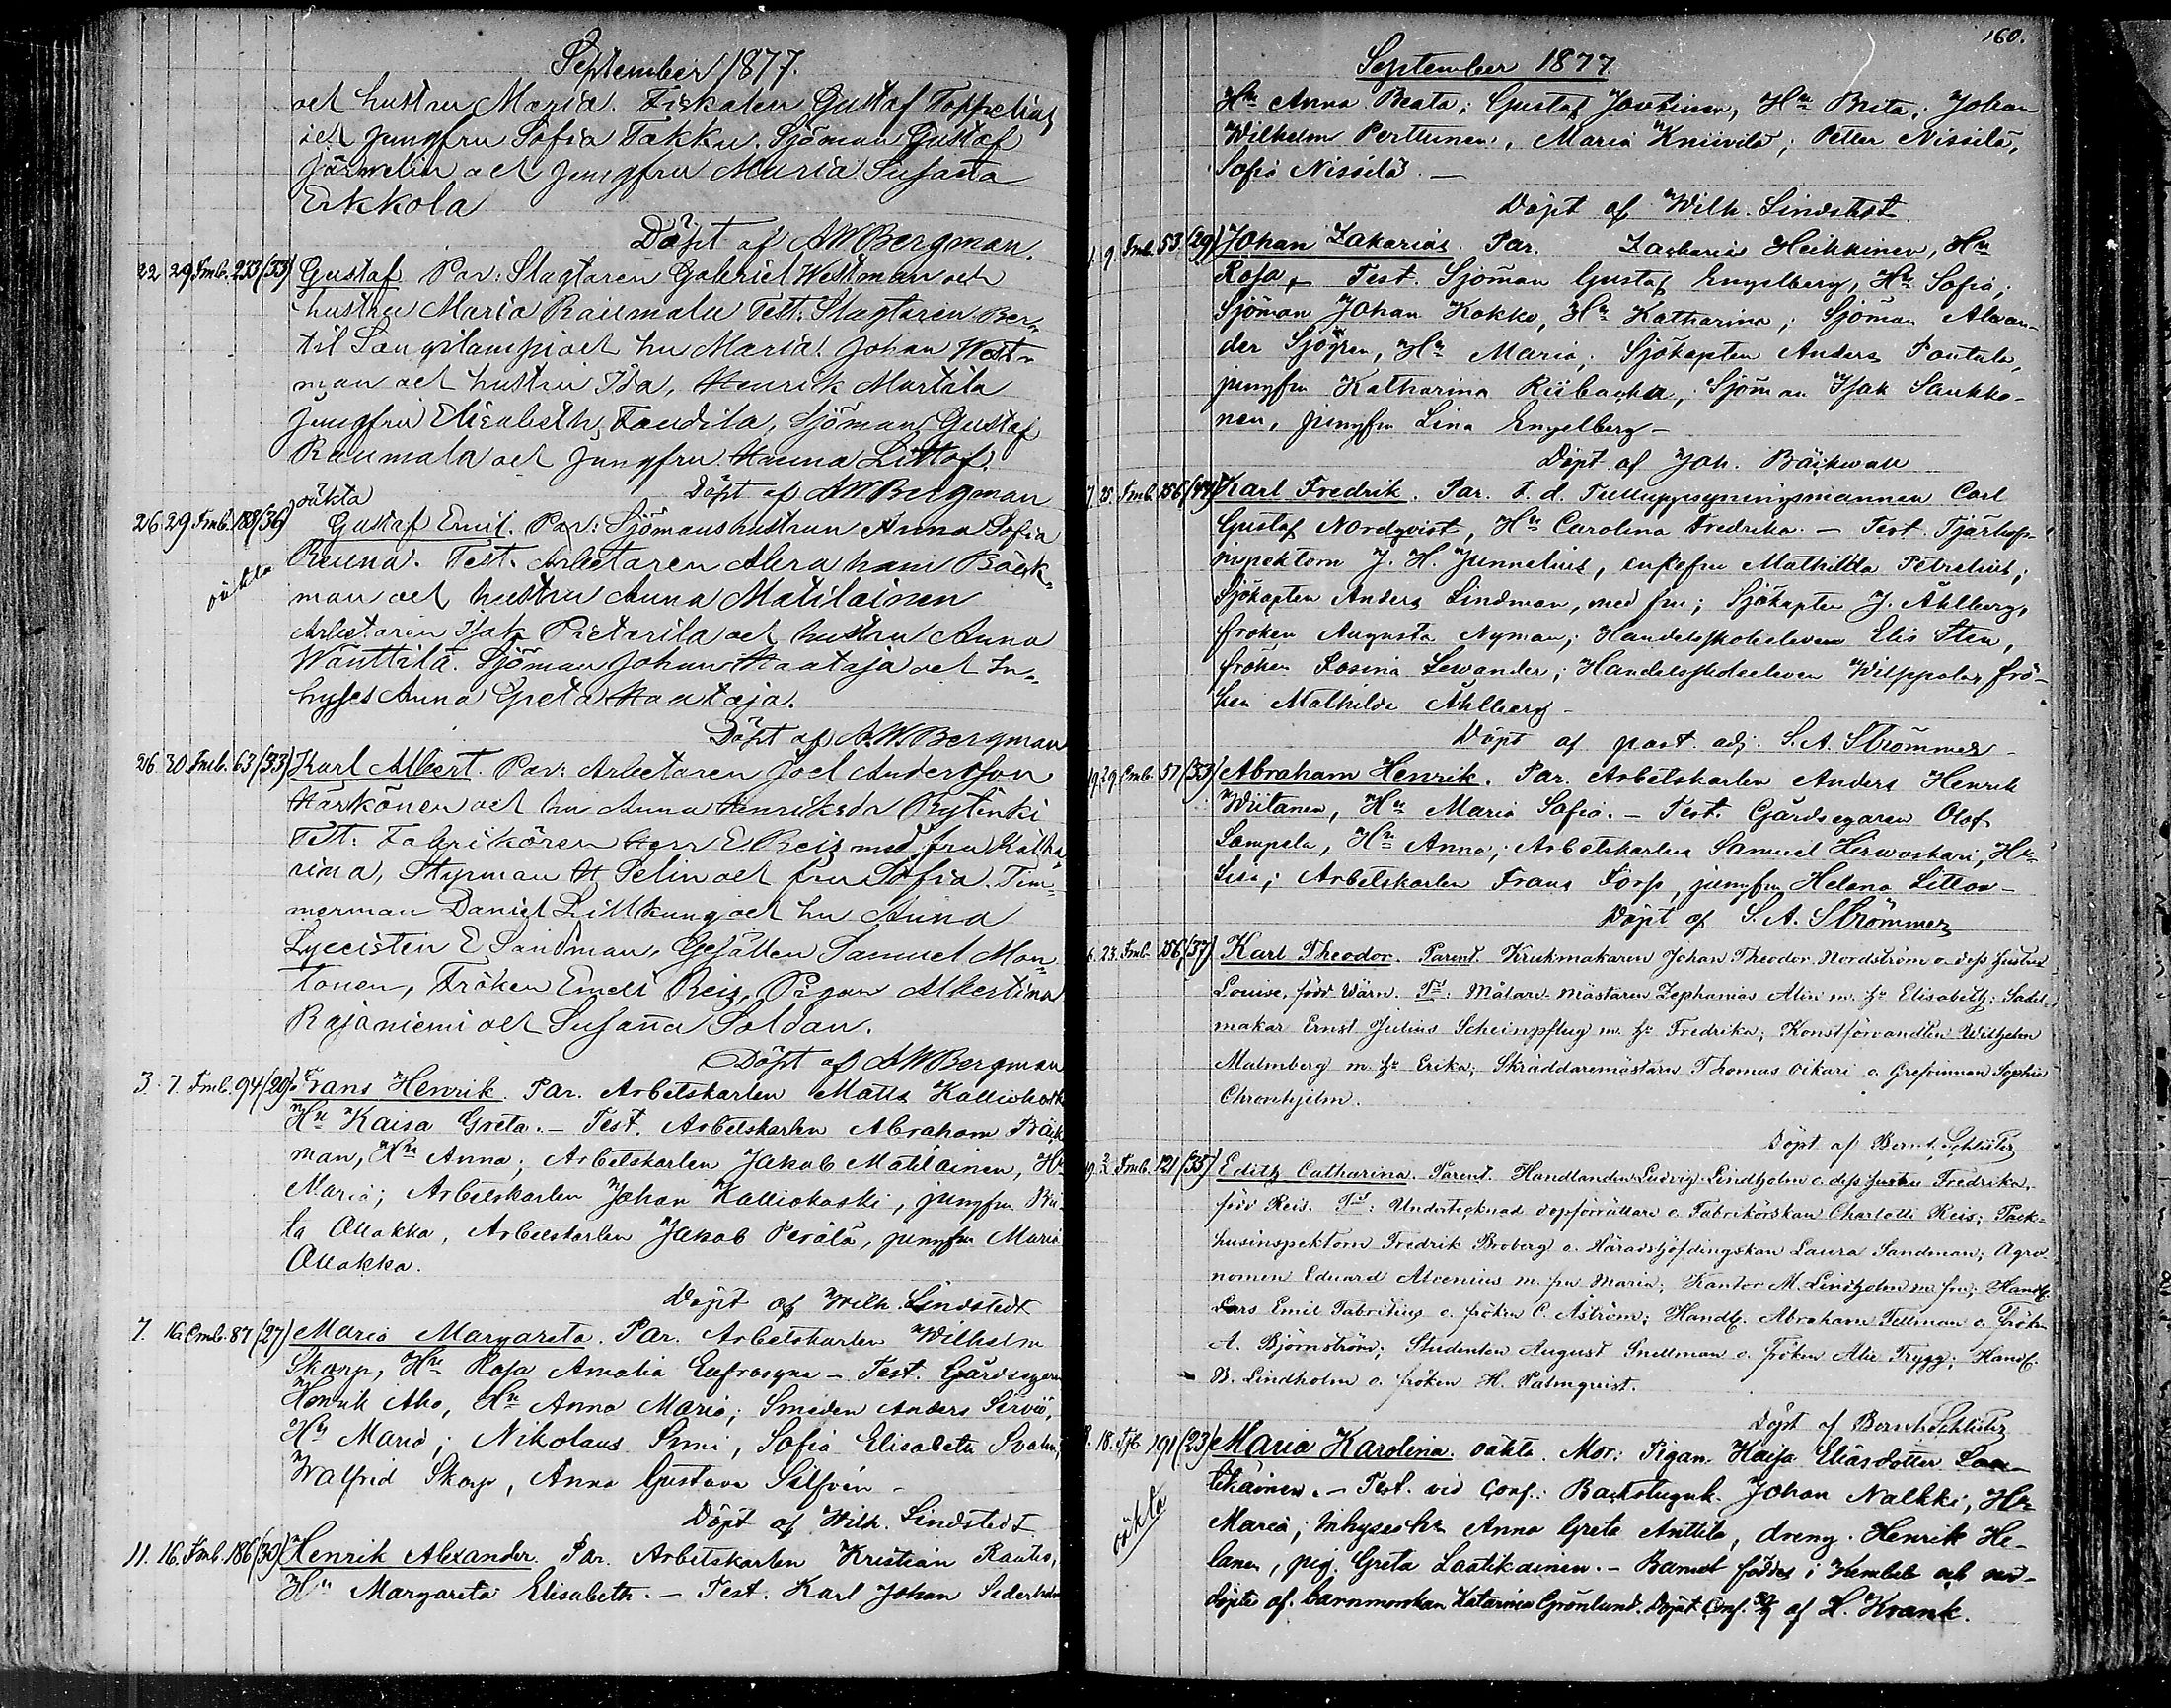 September 1877.
och hustru Maria. Fiskalen Gustaf Toppelius
och Jungfru Sofia Takku. Sjöman Gustaf
Järwelin och Jungfru Maria Susanna
Erkkola
Döpt af AWBergman.
22 29 Fmb. 233 (33) Gustaf Par: Slagtaren Gabriel Westman och
hustru Maria Raumala Test. Slagtaren Ber-
til och hu Maria. Johan West-
man och hustru Ida, Henrik Martila
Jungfru Elisabeth, Sjöman Gustaf
Raumala och Jungfru Hanna Littof.
Döpt af AWBergman
oäkta
26 29 Fmb. 188 (36) Gustaf Emil. Par: Sjömanshustrun Anna Sofia
oäkta Reuna. Test. Arbetaren Abraham Bäck-
man och hustru Anna Matilainen
Arbetaren Isak Pietarila och hustru Anna
Wänttilä. Sjöman Johan Haataja och In-
hyses Anna Greta Haataja.
Döpt af A.W.Bergman
26 30 Fmb. 63 (33) Karl Albert. Par: Arbetaren Joel Andersson
Härkönen och hu Anna Henriksdr Rytinki
Test. Fabrikören Herr E Reis med fru Katha
rina, Styrman H Selin och fru Sofia. Tim-
merman Daniel Littkung och hu Anna
Lyceisten E Sandman, Gesällen Samuel Mon-
tonen, Fröken Emeli Reis, Pigan Albertina
Rajaniemi och Susanna Soldan.
Döpt af AWBergman
3. 7. Fmb. 94 (29) Frans Henrik. Par. Arbetskarlen Matts Kalliokoski
Hu Kaisa Greta. – Test. Arbetskarlen Abraham Bäck
man, Hu Anna; Arbetskarlen Jakob Matilainen, Hu
Maria; Arbetskarlen Johan Kalliokoski, jungfru Bri-
ta Ollakka, Arbetskarlen Jakob Perälä, jungfru Maria
Ollakka.
Döpt af Wilh. Lindstedt
7. 16 Fmb. 87 (27) Maria Margareta. Par. Arbetskarlen Wilhelm
Skarp, Hu Rosa Amalia Eufrosyne – Test. Gårdsegaren
Henrik Aho, Hu Anna Maria; Smeden Anders Serviö,
Hu Maria; Nikolaus Simi, Sofia Elisabeth Svahn,
Walfrid Skarp, Anna Gustava Silfvén –
Döpt af Wilh. Lindstedt
11. 16. Fmb. 186 (30) Henrik Alexander. Par. Arbetskarlen Kristian Rautio,
Hu Margareta Elisabeth. – Test. Karl Johan
160.
September 1877.
Hu Anna Beata; Gustaf Joutinen, Hu Brita; Johan
Wilhelm Perttunen, Maria Kniivilä; Petter Nissilä,
Sofia Nissilä. –
Döpt af Wilh. Lindstedt
1. 9. Fmb. 53 (29) Johan Zakarias. Par. Zacharias Heikkinen, Hu
Rosa, – Test. Sjöman Gustaf Engelberg, Hu Sofia;
Sjöman Johan Kokko, Hu Katharina; Sjöman Alexan-
der Sjögren, Hu Maria; Sjökapten Anders Pautala,
jungfru Katharina Riibacka, Sjöman Isak Saukko-
nen, jungfru Lina Engelberg –
Döpt af Joh. Bäckwall
7. 25. Fmb. 256 (44) Karl Fredrik. Par. F. d. Tulluppsyningsmannen Carl
Gustaf Nordqvist, Hu Carolina Fredrika. – Test. Tjärhofs-
inspektorn J. H. Junnelius, enkefru Mathilda Petrelius;
Sjökapten Anders Lindman, med fru; Sjökapten J. Åhlberg,
fröken Augusta Nyman; Handelsskoleeleven Elis Sten,
fröken Rosina Lewander; Handelsskoleeleven Wilppola, frö-
ken Mathilda Åhlberg –
Döpt af past. adj. S. A. Strömmer –
19. 29. Fmb. 57 (33) Abraham Henrik. Par. Arbetskarlen Anders Henrik
Wiitanen, Hu Maria Sofia. – Test. Gårdsegaren Olof
Lampela, Hu Anna; Arbetskarlen Samuel Hirwoskari, Hu
Lisa; Arbetskarlen Frans Forss, jungfru Helena Littow –
Döpt af S. A. Strömmer
6. 23. Fmb. 256 (37) Karl Theodor. Parent. Krukmakaren Johan Theodor Nordström o. dess hustru
Louise, född Wärn. Tst: Målare-mästaren Zephanias Alin m. hu Elisabeth; Sadel-
makar Ernst Julius Scheinpflug m. hu Fredrika; Konstförvandten Wilhelm
Malmberg m. hu Erika; Skräddaremästarn Thomas Oikari o. Grefvinnan Sophie
Cronhjelm.
Döpt af Bernh. Schlüter
19. 2. Fmb. 121 (35) Edith Catharina. Parent. Handlanden Ludvig Lindholm o. dess hustru Fredrika,
född Reis. Tst: Undertecknad dopförrättare o. Fabrikörskan Charlotte Reis; Pack-
husinspektorn Fredrik Broberg o. Häradshöfdingskan Laura Sandman; Agro-
nomen Eduard Alcenius m. fru Maria; Kantor M. Lindholm m. fru; Handl.
Lars Emil Fabritius o. fröken C. Åström; Handl. Abraham Tellman o. Fröken
A. Björnström; Studenten August Snellman o. fröken Alie Trygg; Handl.
B. Lindholm o. fröken H. Palmqvist.
Döpt af Bernh. Schlüter
8. 18. Tjb 191 (23) Maria Karolina. oäkta. Mor: Pigan Kaisa Eliasdotter Laa-
oäkta tikainen. – Test. vid Conf.: Backstuguk. Johan Nalkki, Hu
Maria; Inhyseshu Anna Greta Anttila, dreng. Henrik He-
lanen, pig. Greta Laatikainen. – Barnet föddes i Kembele och nöd-
döptes af barnmorskan Katarina Grönlund. Döpt Conf. af H. Krank.